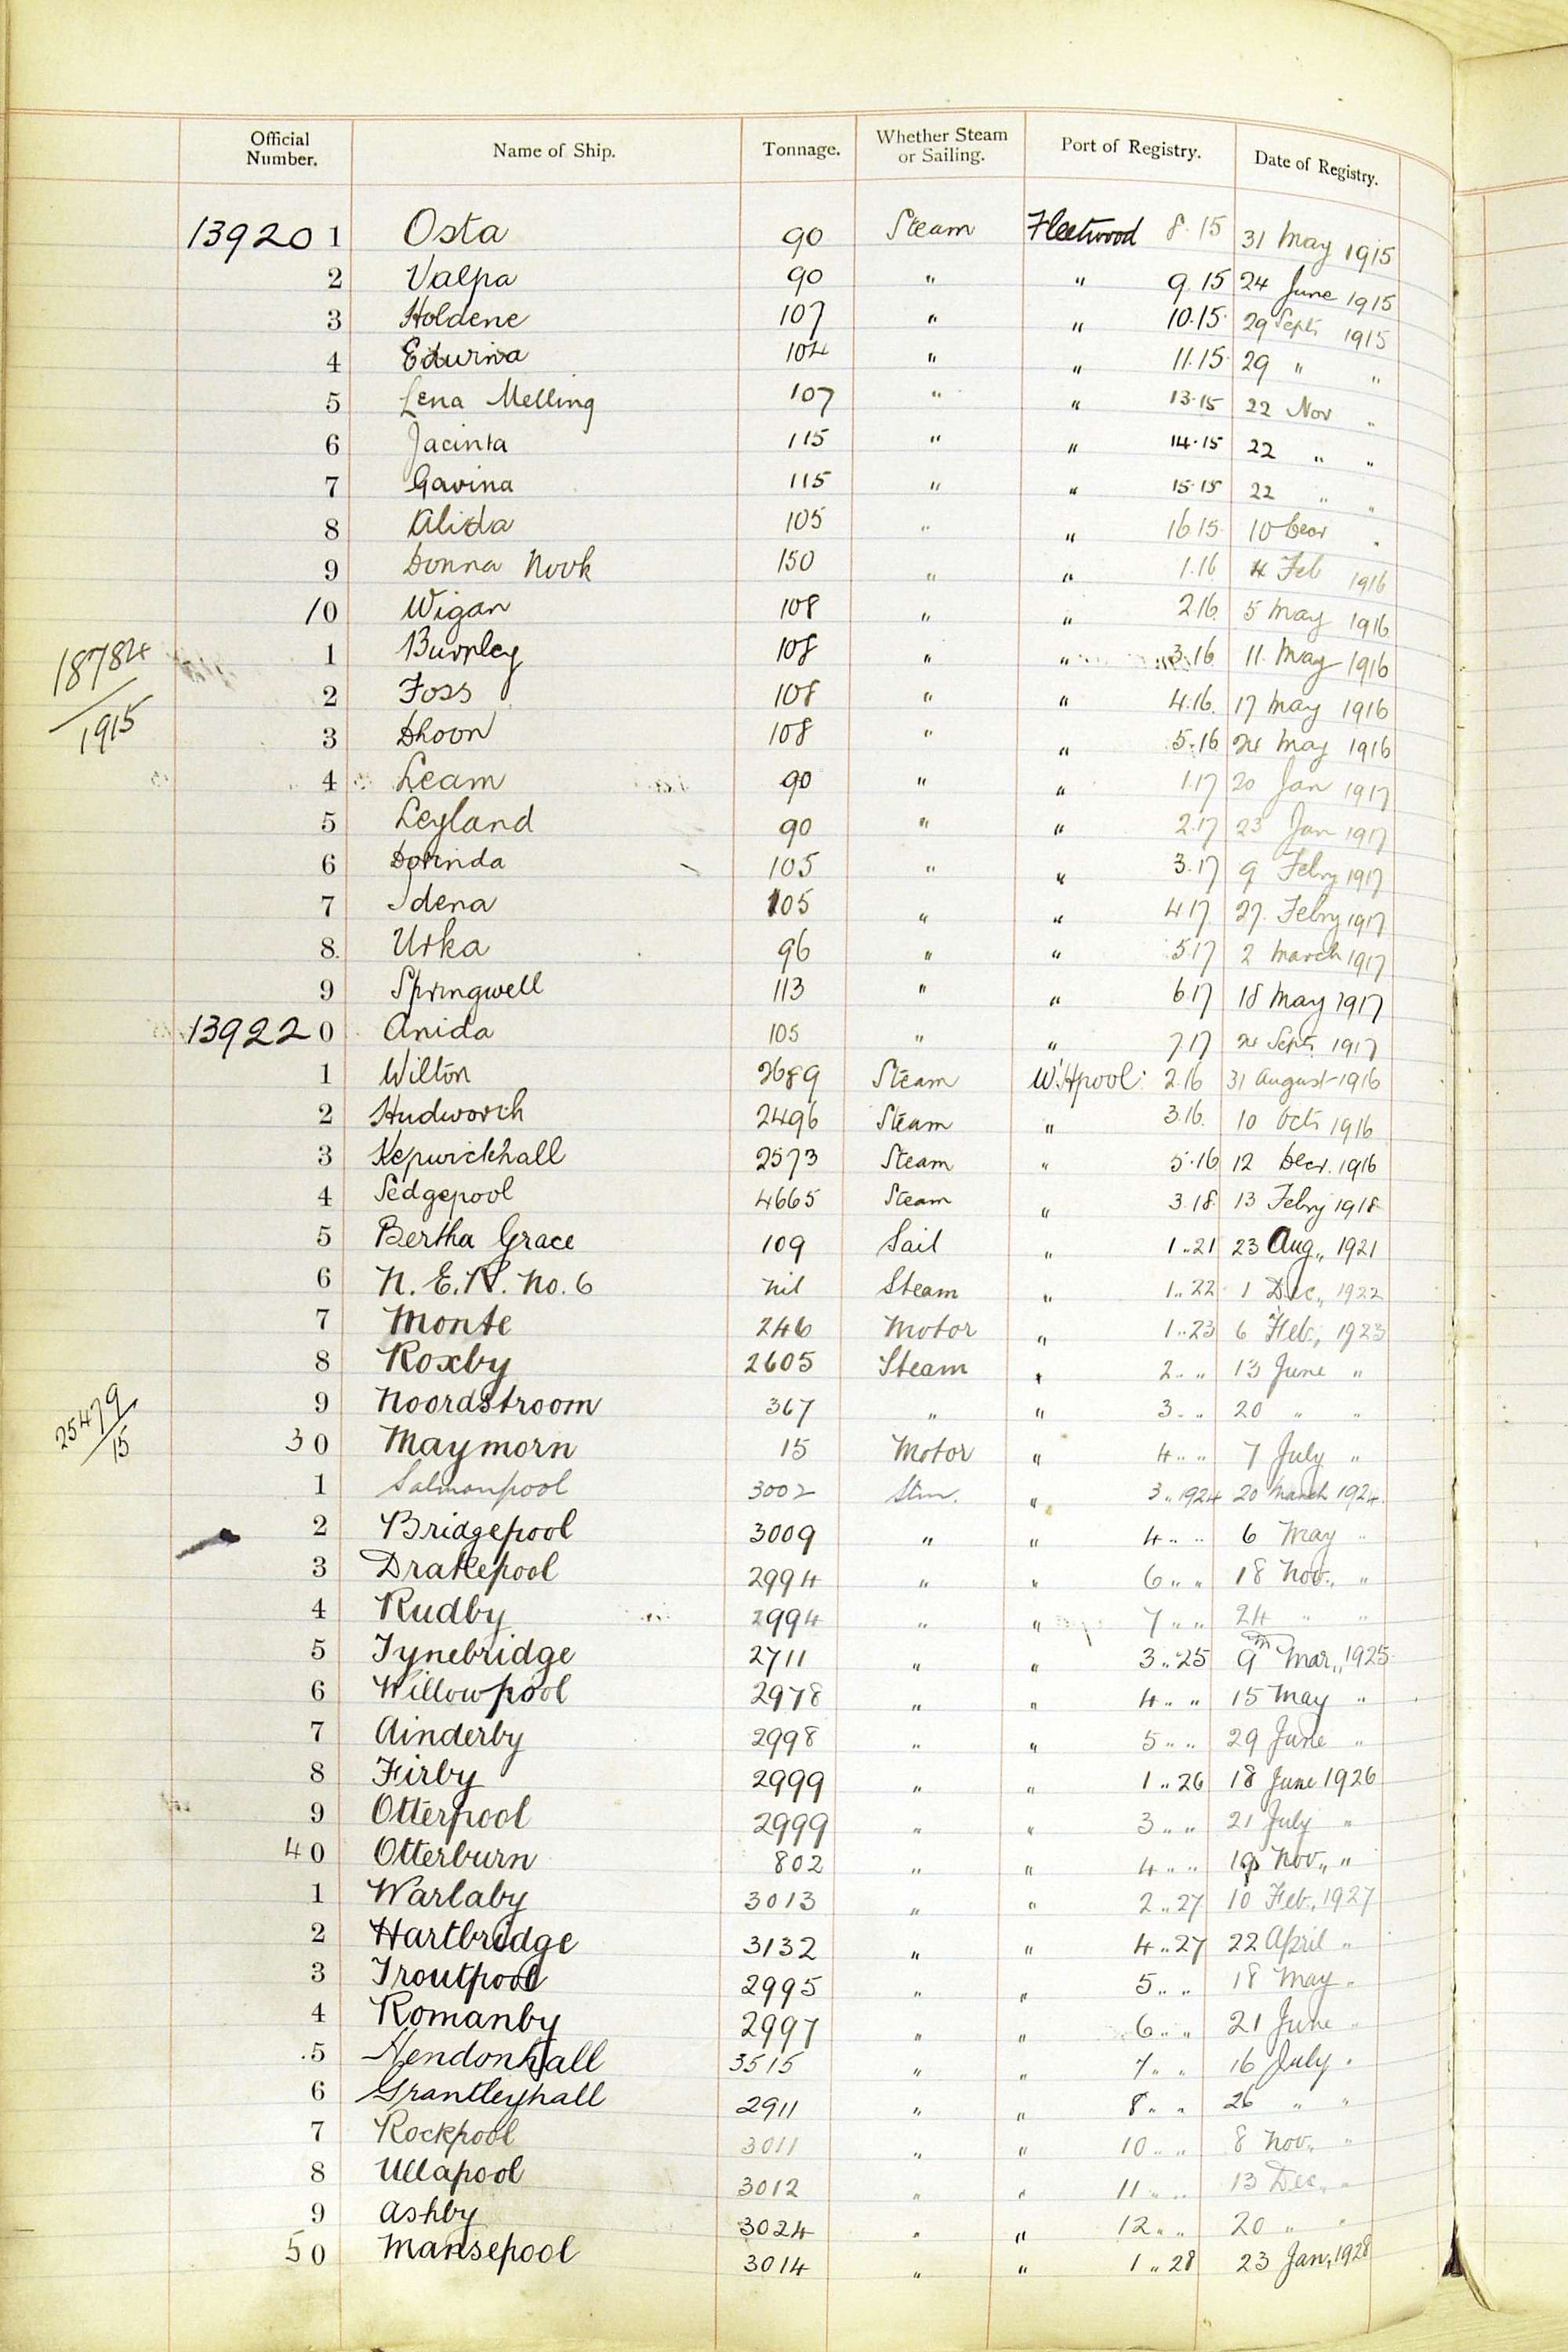 Official Number. Name of Ship. Tonnage. Whether Steam or Sailing. Port of Registry. Date of Registry.
139201 Osta 90 Steam Fleetwood 8.15 31 May 1915
2 Valpa 90 " " 9.15 24 June 1915
3 Holdene 107 " " 10.15 29 Sept. 1915
4 Edwina 104 " " 11.15 29 " "
5 Lena Melling 107 " " 13.15 22 Nov "
6 Jacinta 115 " " 14.15 22 " "
7 Gavina 115 " " 15.15 22 " "
8 Alida 105 " " 16 15 10 Decr "
9 Donna Nook 150 " " 1.16 4 Feb 1916
10 Wigan 108 " " 2.16 5 May 1916
18784/1915
1 Burnley 108 " " 3.16 11 May 1916
2 Foss 108 " " 4.16. 17 May 1916
3 Dhoon 108 " " 5.16 24 May 1916
4 Leam 90 " " 1.17 20 Jan 1917
5 Leyland 90 " " 2.17 23 Jan 1917
6 Dorinda 105 " " 3.17 9 Febry 1917
7 Idena 105 " " 4 17 27. Febry 1917
8. Urka 96 " " 5 17 2 March 1917
9 Springwell 113 " " 6 17 18 May 1917
139220 Anida 105 " " 7.17 24 Sept. 1917
1 Wilton 2689 Steam W. Hpool 2.16 31 August 1916
2 Hudworth 2496 Steam " 3.16. 10 Oct. 1916
3 Kepwickhall 2573 Steam " 5.16 12 Decr. 1916
4 Sedgepool 4665 Steam " 3.18 13 Febry 1918
5 Bertha Grace 109 Sail " 1..21 23 Aug., 1921
6 N.E.R. No. 6 Nil Steam " 1..22 1 Dec., 1922
7 Monte 246 Motor " 1..23 6 Feb., 1923
8 Roxby 2605 Steam " 2.. " 13 June "
25479/15
9 Noordstroom 367 " " 3.. " 20 " "
30 Maymorn 15 Motor " 4.. " 7 July "
1 Salmonpool 3002 Stm. " 3..1924 20 March 1924.
2 Bridgepool 3009 " " 4.. " 6 May "
3 Drakepool 2994 " " 6.. " 18 Nov., "
4 Rudby 2994 " " 7.. " 24 " "
5 Tynebridge 2711 " " 3..25 9th Mar., 1925
6 Willowpool 2978 " " 4.. " 15 May "
7 Ainderby 2998 " " 5.. " 29 June "
8 Firby 2999 " " 1..26 18 June 1926
9 Otterpool 2999 " " 3.. " 21 July "
40 Otterburn 802 " " 4.. " Nov., "
1 Warlaby 3013 " " 2..27 10 Feb., 1927
2 Hartbridge 3132 " " 4..27 22 April "
3 Troutpool 2995 " " 5.. " 18 May "
4 Romanby 2997 " " 6.. " 21 June "
5 Hendonhall 3515 " " 7.. " 16 July "
6 Grantleyhall 2911 " " 8.. " 26 " "
7 Rockpool 3011 " " 10.. " 8 Nov., "
8 Ullapool 3012 " " 11.. " 13 Dec., "
9 Ashby 3024 " " 12.. " 20 " "
50 Mansepool 3014 " " 1..28 23 Jan., 1928